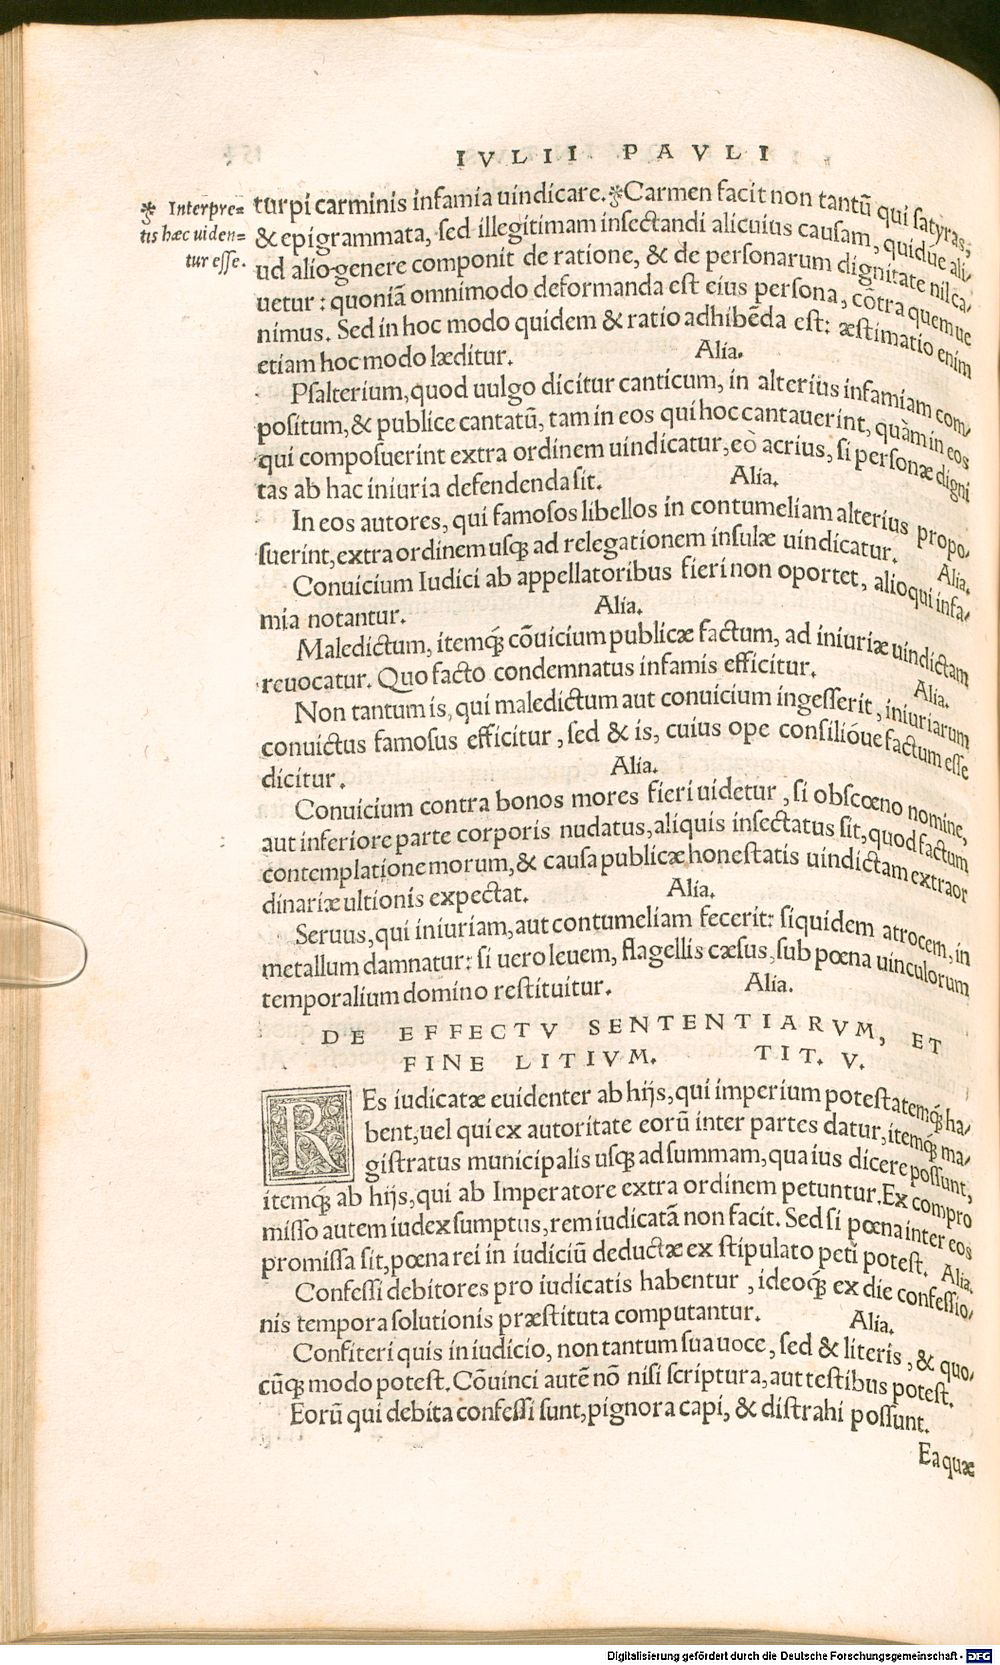 IVLII PAVLI
✽ Interpre=
tis hæc uiden=
tur esse.
turpi carminis infamia uindicare.✽Carmen facit non tantū qui satyras,
& epigrammata, sed illegitimam insectandi alicuius causam, quidue ali/
ud alio genere componit de ratione, & de personarum dignitate nil ca/
uetur: quoniā omnimodo deformanda est eius persona, cōtra quem ue
nimus. Sed in hoc modo quidem & ratio adhibēda est: æstimatio enim
etiam hoc modo læditur. Alia.
Psalterium, quod uulgo dicitur canticum, in alterius infamiam com/
positum, & publice cantatū, tam in eos qui hoc cantauerint, quàm in eos
qui composuerint extra ordinem uindicatur, eò acrius, si personæ digni
tas ab hac iniuria defendenda sit. Alia.
In eos autores, qui famosos libellos in contumeliam alterius propo/
suerint, extra ordinem usq; ad relegationem insulæ uindicatur. Alia.
Conuicium Iudici ab appellatoribus fieri non oportet, alioqui infa/
mia notantur. Alia.
Maledictum, itemq; cōuicium publicæ factum, ad iniuriæ uindictam
reuocatur. Quo facto condemnatus infamis efficitur. Alia.
Non tantum is, qui maledictum aut conuicium ingesserit, iniuriarum
conuictus famosus efficitur, sed & is, cuius ope consilióue factum esse
dicitur. Alia.
Conuicium contra bonos mores fieri uidetur, si obscœno nomine,
aut inferiore parte corporis nudatus, aliquis insectatus sit, quod factum
contemplatione morum, & causa publicæ honestatis uindictam extraor
dinariæ ultionis expectat. Alia.
Seruus, qui iniuriam, aut contumeliam fecerit: siquidem atrocem, in
metallum damnatur: si uero leuem, flagellis cæsus, sub pœna uinculorum
temporalium domino restituitur. Alia.
DE EFFECTV SENTENTIARVM, ET
FINE LITIVM. TIT. V.
REs iudicatæ euidenter ab hijs, qui imperium potestatemq; ha/
bent, uel qui ex autoritate eorū inter partes datur, itemq; ma/
gistratus municipalis usq; ad summam, qua ius dicere possunt,
itemq; ab hijs, qui ab Imperatore extra ordinem petuntur. Ex compro
misso autem iudex sumptus, rem iudicatā non facit. Sed si pœna inter eos
promissa sit, pœna rei in iudiciū deductæ ex stipulato peti potest. Alia.
Confessi debitores pro iudicatis habentur, ideoq; ex die confessio/
nis tempora solutionis præstituta computantur. Alia.
Confiteri quis in iudicio, non tantum sua uoce, sed & literis, & quo/
cūq; modo potest. Cōuinci autē nō nisi scriptura, aut testibus potest.
Eorū qui debita confessi sunt, pignora capi, & distrahi possunt.
Ea quæ
Digitalisierung gefördert durch die Deutsche Forschungsgemeinschaft - DFG